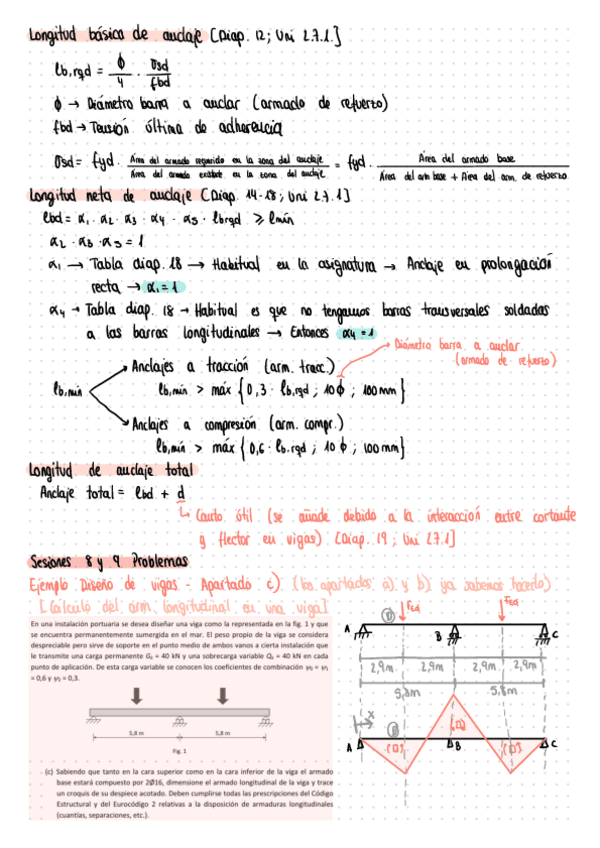 Longitud básica de anclaje [Diap. 12; Uni 2.7.1.]
lb,rqd = ϕ/4 · σsd/fbd
ϕ → Diámetro barra a anclar (armado de refuerzo)
fbd → Tensión última de adherencia
σsd = fyd · Área del armado requerido en la zona del anclaje / Área del armado existente en la zona del anclaje = fyd · Área del armado base / Área del arm base + Área del arm. de refuerzo
Longitud neta de anclaje [Diap. 14-18; Uni 2.7.1]
lbd = α1 · α2 · α3 · α4 · α5 · lbrqd ≥ lmín
α2 · α3 · α5 = 1
α1 → Tabla diap. 18 → Habitual en la asignatura → Anclaje en prolongación
recta → α1 = 1
α4 → Tabla diap. 18 → Habitual es que no tengamos barras transversales soldadas
a las barras longitudinales → Entonces α4 = 1
Diámetro barra a anclar
(armado de refuerzo)
Anclajes a tracción (arm. tracc.)
lb,mín > máx {0,3 · lb,rqd ; 10ϕ ; 100mm}
lb,mín
Anclajes a compresión (arm. compr.)
lb,mín > máx {0,6 · lb.rqd ; 10 ϕ ; 100mm}
Longitud de anclaje total
Anclaje total = lbd + d
Canto útil (se añade debido a la interacción entre cortante
y flector en vigas) [Diap. 19 ; Uni 2.7.1]
Sesiones 8 y 9 Problemas
Ejemplo Diseño de vigas - Apartado c) (los apartados a) y b) ya sabemos hacerlo)
[Cálculo del arm. longitudinal en una viga]
En una instalación portuaria se desea diseñar una viga como la representada en la fig. 1 y que
se encuentra permanentemente sumergida en el mar. El peso propio de la viga se considera
despreciable pero sirve de soporte en el punto medio de ambos vanos a cierta instalación que
le transmite una carga permanente Gk = 40 kN y una sobrecarga variable Qk = 40 kN en cada
punto de aplicación. De esta carga variable se conocen los coeficientes de combinación ψ0 = ψ1
= 0,6 y ψ2 = 0,3.
5,8 m 5,8 m
Fig. 1
(c) Sabiendo que tanto en la cara superior como en la cara inferior de la viga el armado
base estará compuesto por 2Ø16, dimensione el armado longitudinal de la viga y trace
un croquis de su despiece acotado. Deben cumplirse todas las prescripciones del Código
Estructural y del Eurocódigo 2 relativas a la disposición de armaduras longitudinales
(cuantías, separaciones, etc.).
FEd FEd
A B C
2,9m 2,9m 2,9m 2,9m
5,8m 5,8m
x
A B C